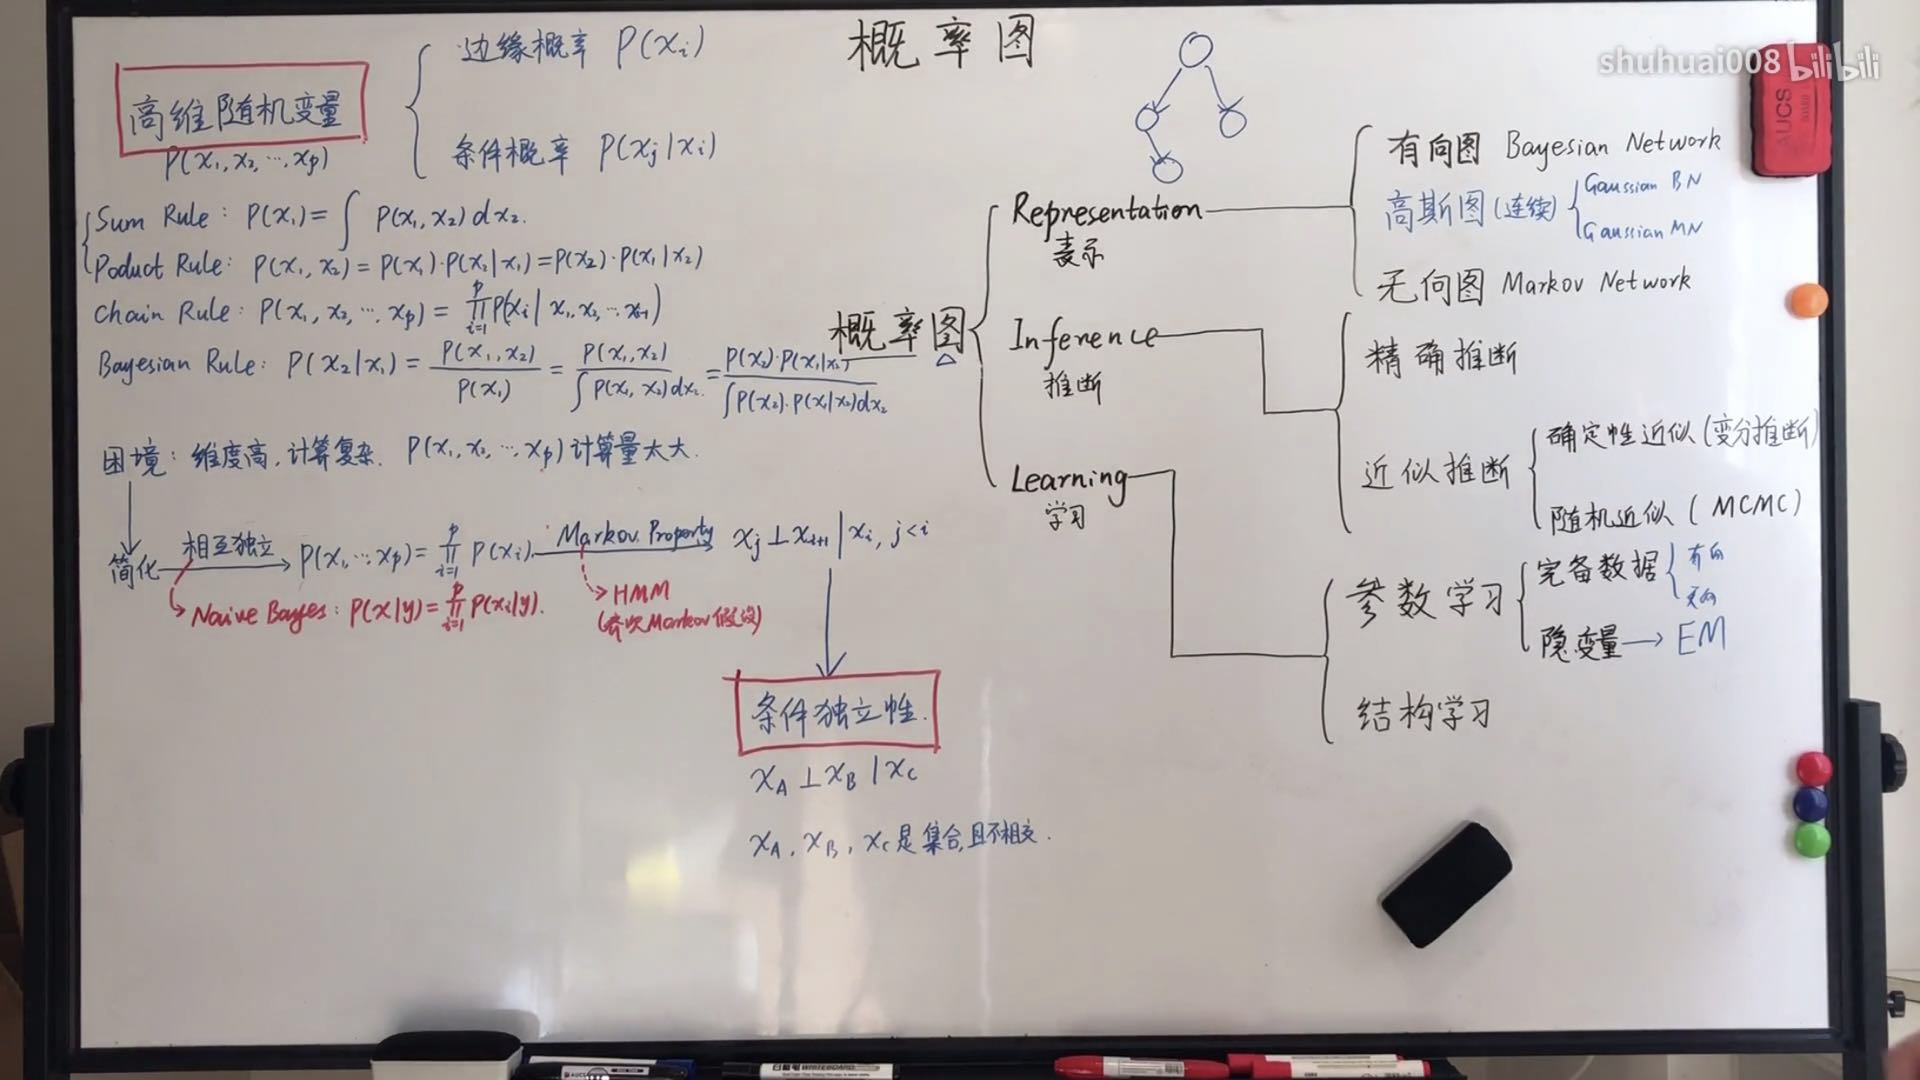 概率图
shuhuai008 bilibili
AUCS
高维随机变量
P(x₁, x₂, ⋯, xₚ)
边缘概率 P(xᵢ)
条件概率 P(xⱼ|xᵢ)
Sum Rule: P(x₁) = ∫ P(x₁, x₂) dx₂.
Poduct Rule: P(x₁, x₂) = P(x₁)·P(x₂|x₁) = P(x₂)·P(x₁|x₂)
Chain Rule: P(x₁, x₂, ⋯, xₚ) = ∏ᵢ₌₁ᵖ P(xᵢ | x₁, x₂, ⋯ xᵢ₋₁)
Bayesian Rule: P(x₂|x₁) = P(x₁, x₂) / P(x₁) = P(x₁, x₂) / ∫ P(x₁, x₂) dx₂ = P(x₂)·P(x₁|x₂) / ∫ P(x₂)·P(x₁|x₂) dx₂
困境: 维度高, 计算复杂. P(x₁, x₂, ⋯, xₚ) 计算量太大.
简化 相互独立 → P(x₁, ⋯ xₚ) = ∏ᵢ₌₁ᵖ P(xᵢ). Markov Property xⱼ ⊥ xᵢ₊₁ | xᵢ, j < i
Naive Bayes: P(x|y) = ∏ᵢ₌₁ᵖ P(xᵢ|y).
HMM
(齐次Markov假设)
条件独立性.
x_A ⊥ x_B | x_C
x_A, x_B, x_C 是集合, 且不相交.
概率图
Representation
表示
有向图 Bayesian Network
高斯图 (连续)
Gaussian BN
Gaussian MN
无向图 Markov Network
Inference
推断
精确推断
近似推断
确定性近似 (变分推断)
随机近似 (MCMC)
Learning
学习
参数学习
完备数据
有向
无向
隐变量 → EM
结构学习
AUCS
WHITEBOARD